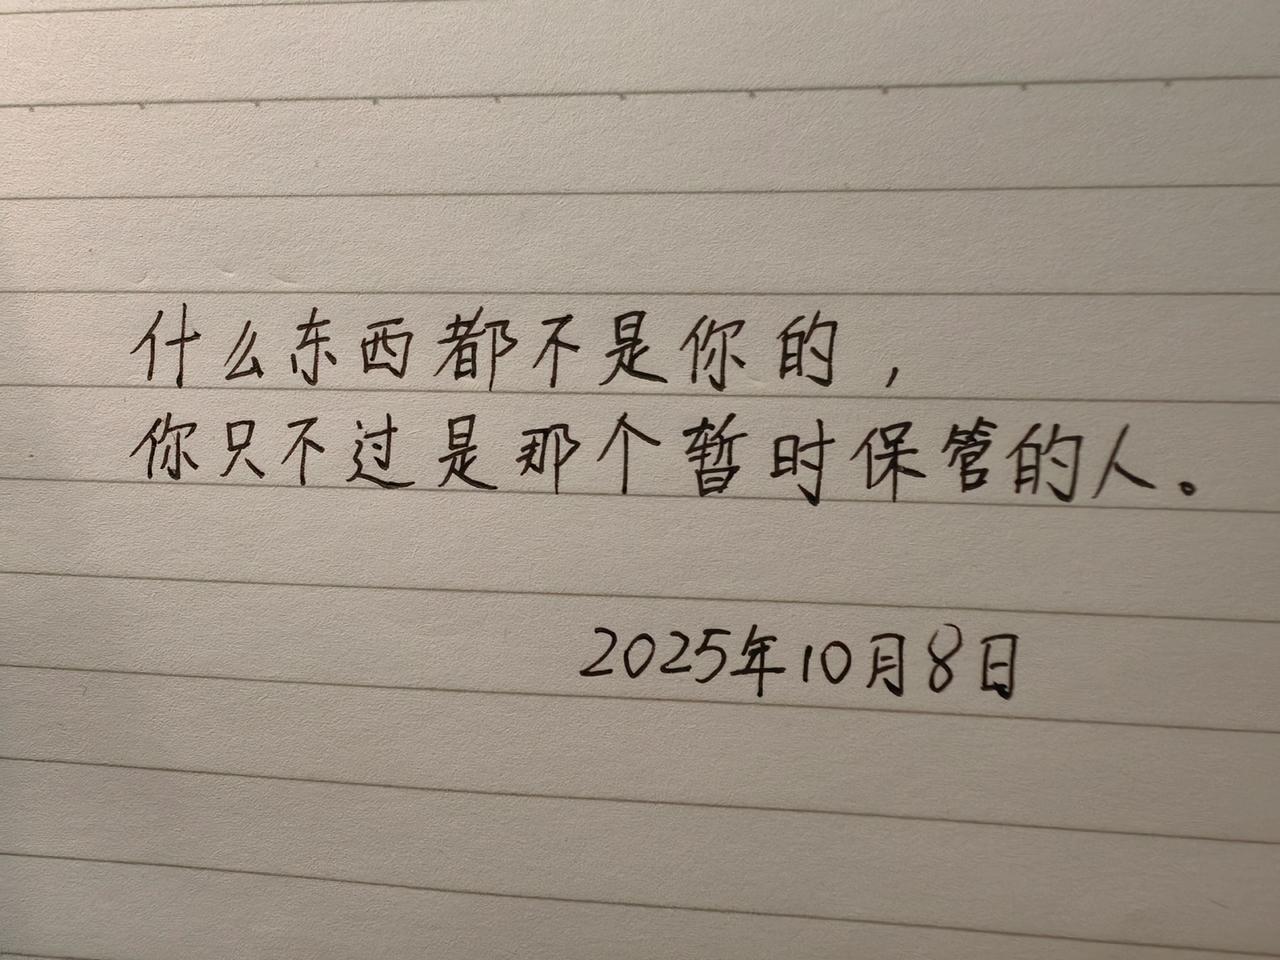 什么东西都不是你的，
你只不过是那个暂时保管的人。
2025年10月8日